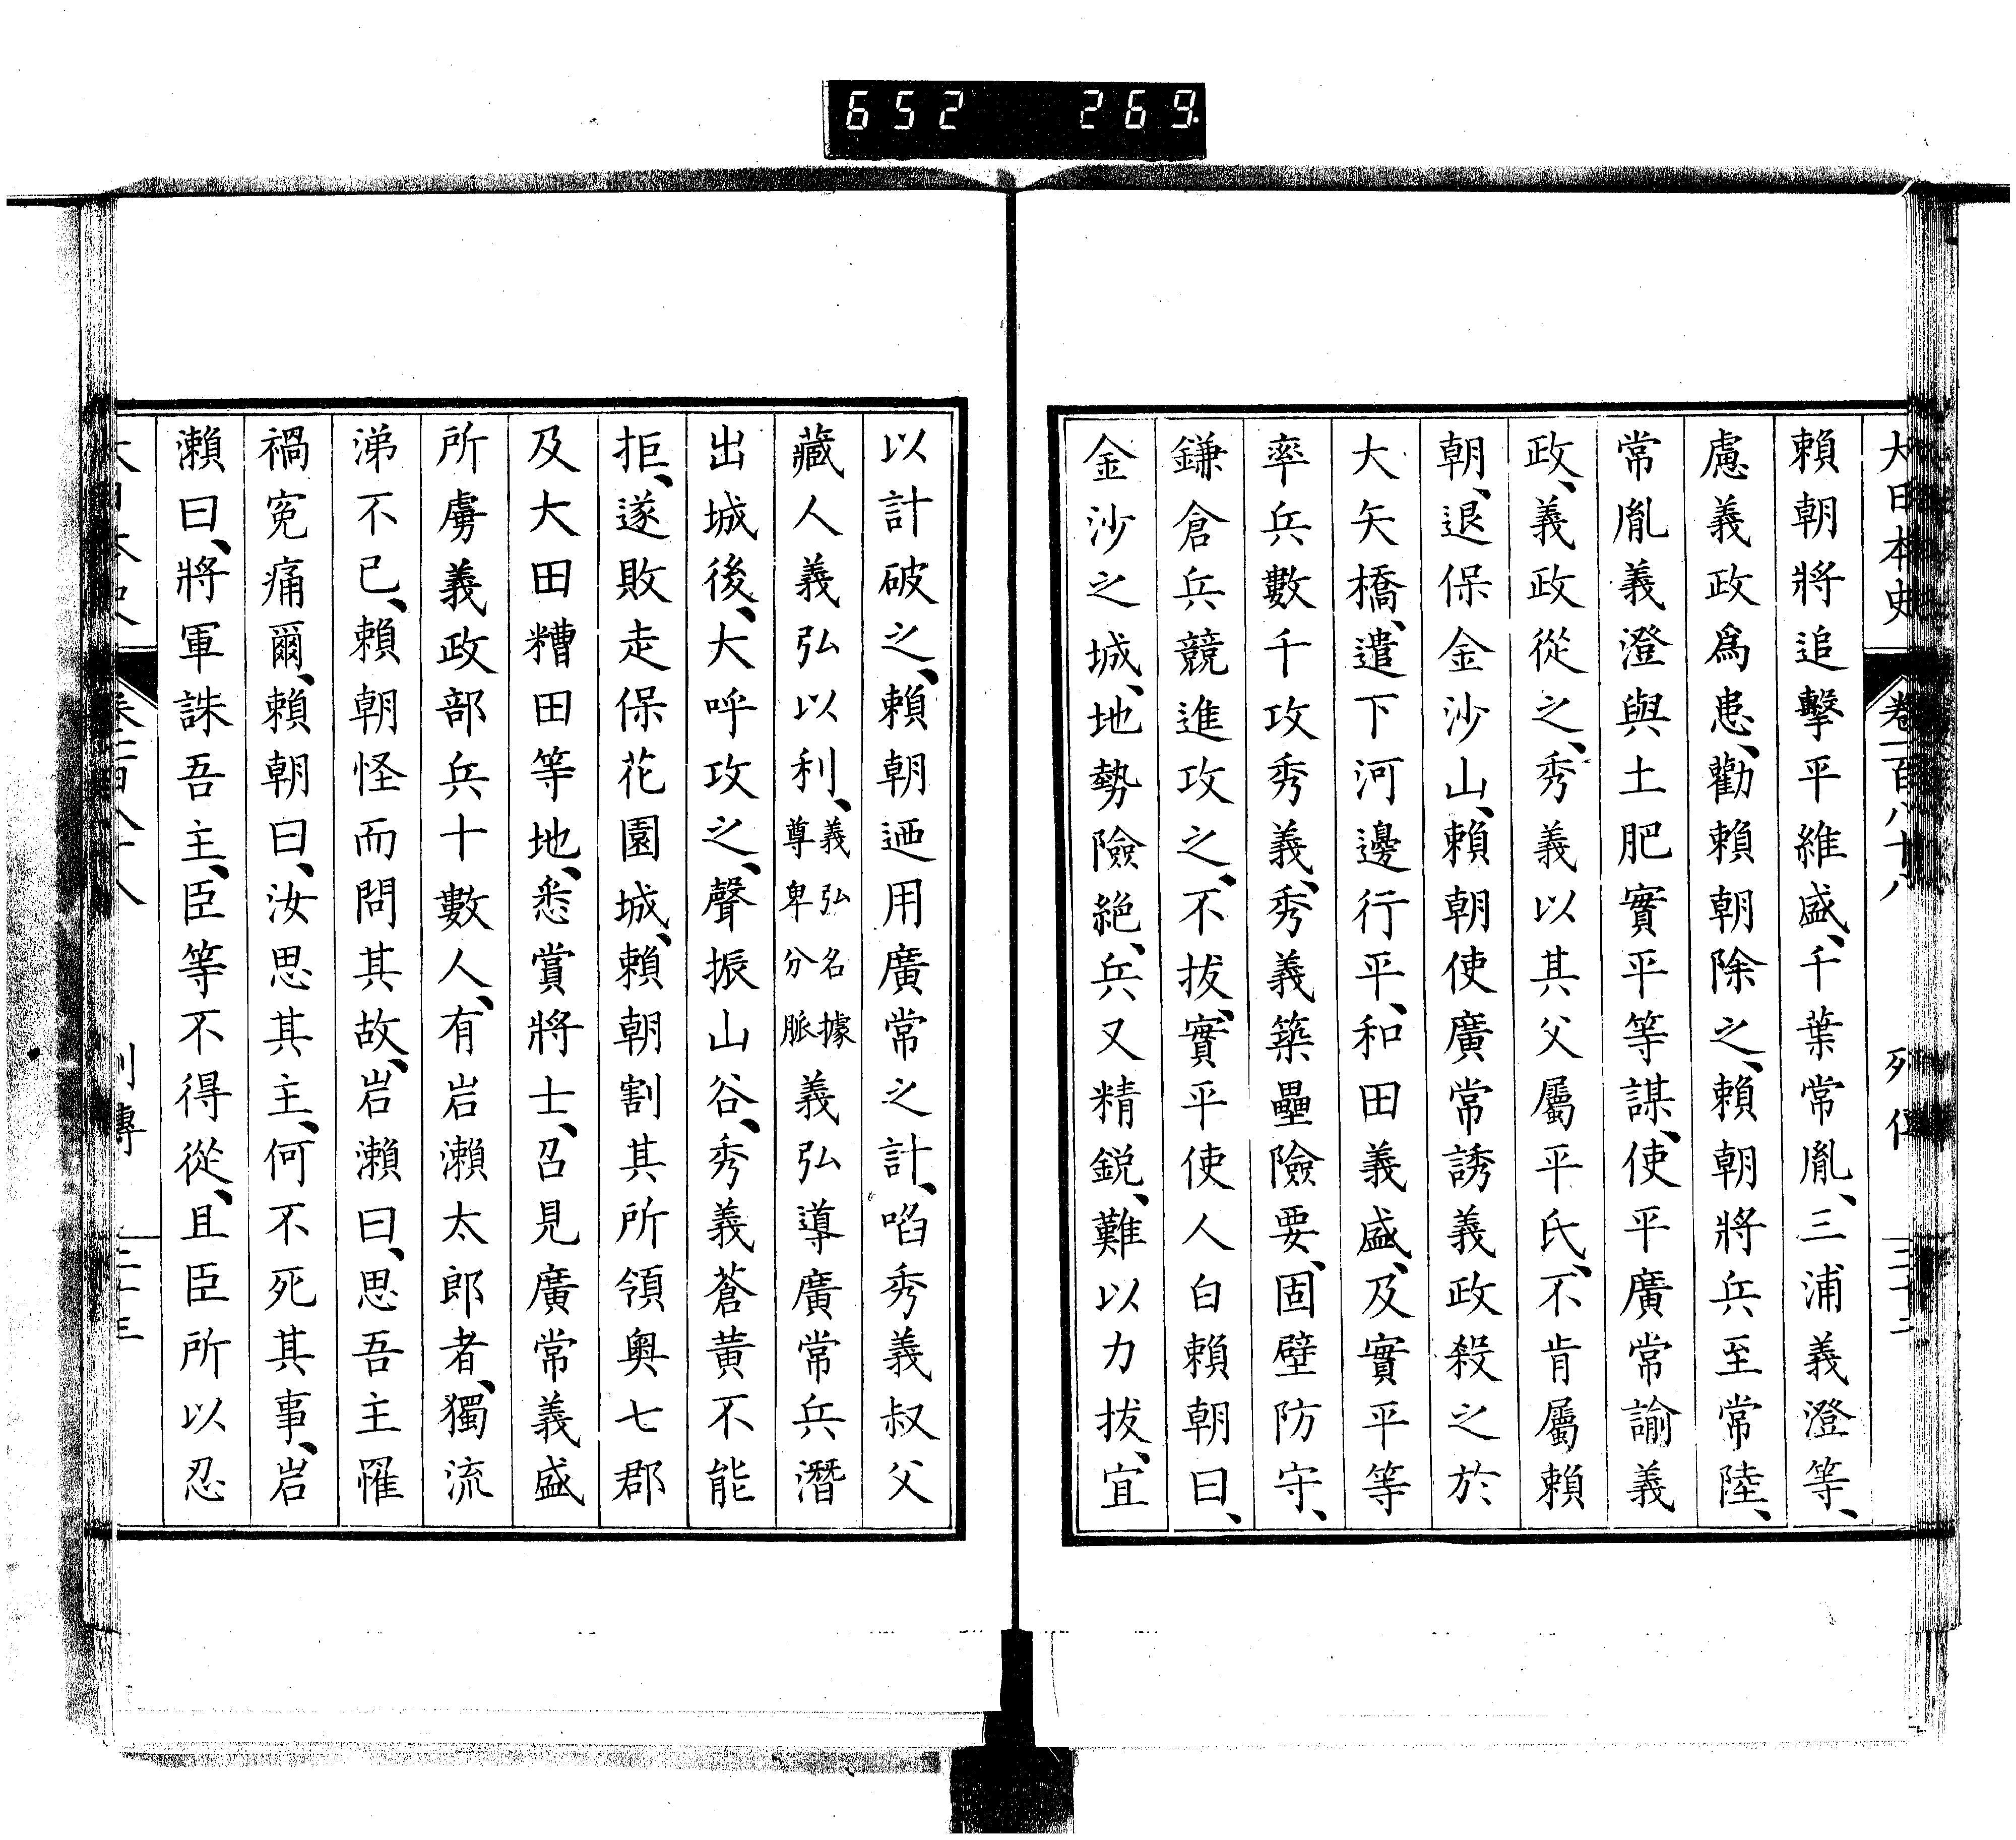 652 269.
大日本史 卷一百八十八 列傳
賴朝將追擊平維盛、千葉常胤、三浦義澄等、
慮義政爲患、勸賴朝除之、賴朝將兵至常陸、
常胤義澄與土肥實平等謀、使平廣常諭義
政、義政從之、秀義以其父屬平氏、不肯屬賴
朝、退保金沙山、賴朝使廣常誘義政殺之於
大矢橋、遣下河邊行平、和田義盛、及實平等
率兵數千攻秀義、秀義築壘險要、固壁防守、
鎌倉兵競進攻之、不拔、實平使人白賴朝曰、
金沙之城、地勢險絶、兵又精鋭、難以力拔、宜
以計破之、賴朝迺用廣常之計、啗秀義叔父
藏人義弘以利、義弘名據尊卑分脈義弘導廣常兵潛
出城後、大呼攻之、聲振山谷、秀義蒼黃不能
拒、遂敗走保花園城、賴朝割其所領奧七郡
及大田糟田等地、悉賞將士、召見廣常義盛
所虜義政部兵十數人、有岩瀨太郎者、獨流
涕不已、賴朝怪而問其故、岩瀨曰、思吾主罹
禍寃痛爾、賴朝曰、汝思其主、何不死其事、岩
瀨曰、將軍誅吾主、臣等不得從、且臣所以忍
列傳